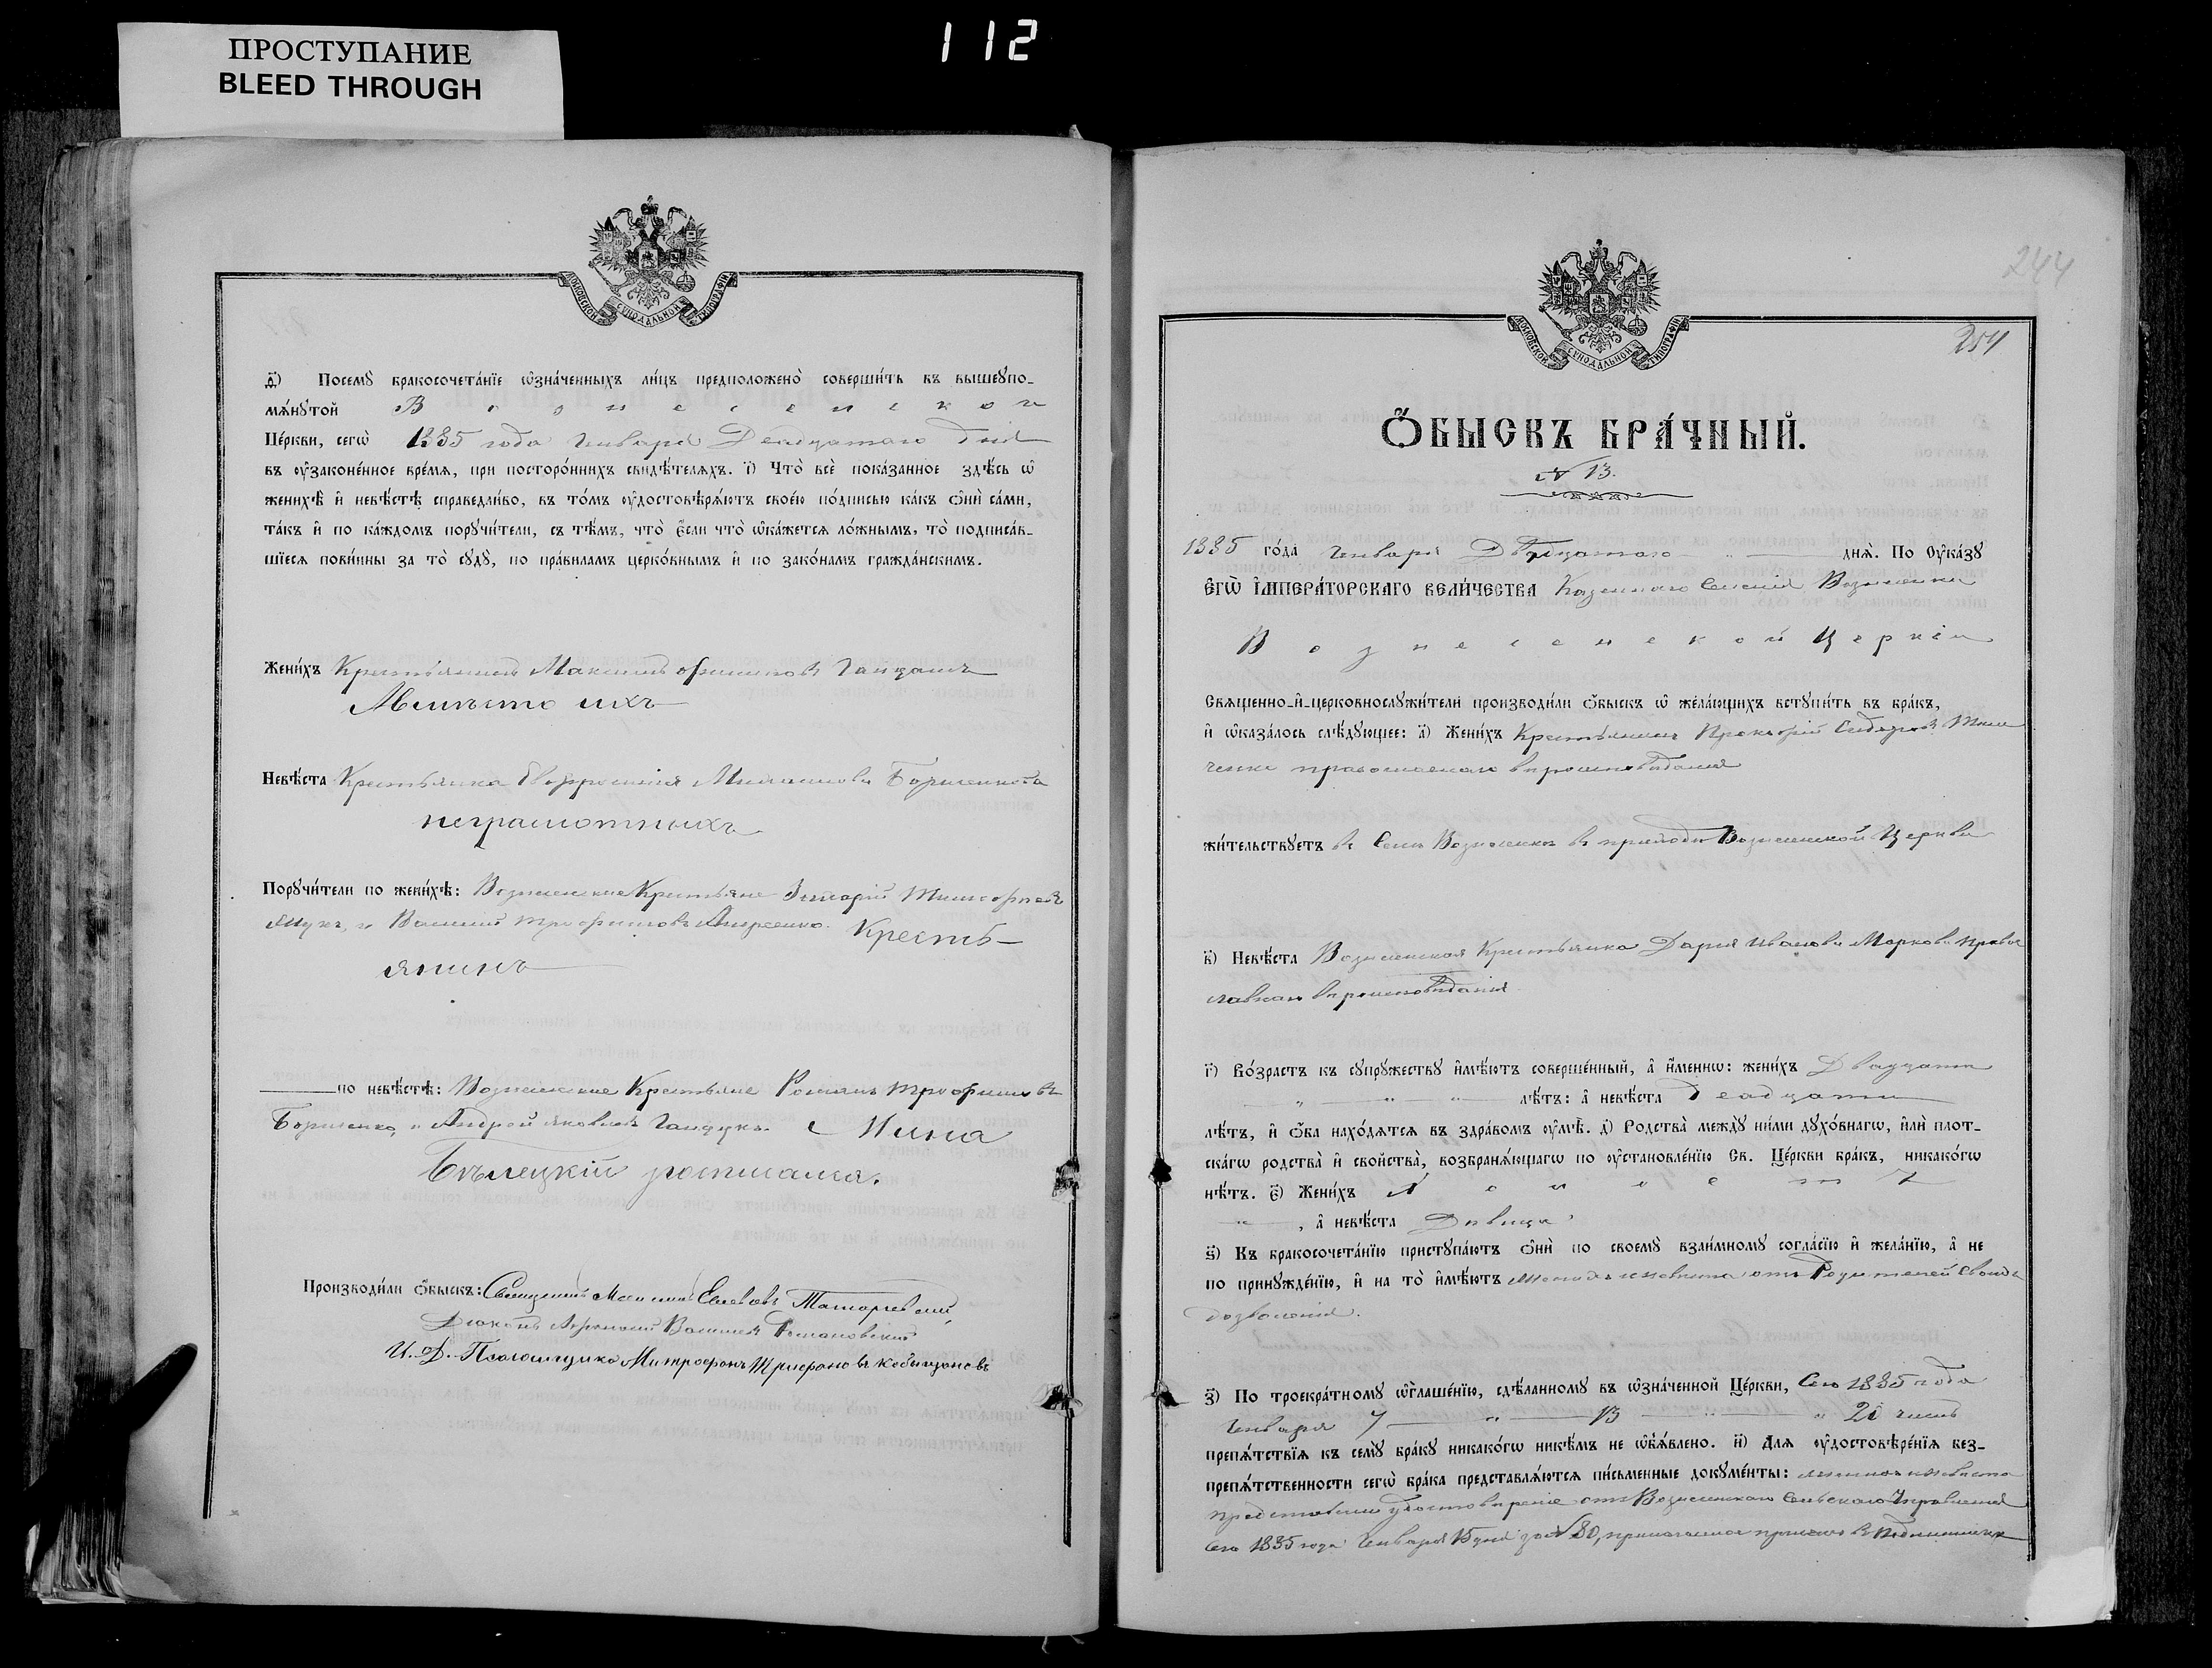 ПРОСТУПАНИЕ
BLEED THROUGH
112
МОСКОВСКОЙ СУНОДАЛЬНОЙ ТИПОГРАФІИ
ѳ҃) Посемꙋ̀ бракосочета́нїе ѡ҆зна́ченныхъ ли́цъ предположено̀ соверши́ть въ вышеꙋпо-
мѧ́нꙋтой Вознесенской
Це́ркви, сегѡ̀ 1885 года Января Двадцатаго дня
въ ᲂу҆законе́нное вре́мѧ, при посторо́ннихъ свидѣ́телѧхъ. і҃) Что̀ всѐ пока́занное здѣ́сь ѡ҆
женихѣ̀ и҆ невѣ́стѣ справедли́во, въ то́мъ ᲂу҆достовѣрѧ́ютъ свое́ю по́дписью ка́къ ѻ҆нѝ са́ми,
та́къ и҆ по ка́ждомъ порꙋчи́тели, съ тѣ́мъ, что̀ є҆́сли что̀ ѡ҆ка́жетсѧ ло́жнымъ, то̀ подписа́в-
шїесѧ пови́нны за то̀ сꙋдꙋ̀, по пра́виламъ церко́внымъ и҆ по зако́намъ гражда́нскимъ.
Жени́хъ Крестьянинъ Максимъ
Авмѣсто ихъ
Невѣ́ста Крестьянка Евфросинія Борисенкова
неграмотныхъ
Порꙋчи́тели по женихѣ̀: Вознесенские Крестьяне
и Василий Трофимовъ Андреенко. Кресть-
янинъ
по невѣ́стѣ: Вознесенские Крестьяне Романъ Трофимовъ
Борисенко, и Андрей Яковлевъ Гайдукъ. Мина
Бѣлецкій росписался.
Производи́ли ѻ҆́быскъ: Священникъ
Діаконъ Василій Романовскій
И. Д. Псаломщика Митрофанъ Трифоновъ
244
254
МОСКОВСКОЙ СУНОДАЛЬНОЙ ТИПОГРАФІИ
Ѻ҆́БЫСКЪ БРА́ЧНЫЙ.
№ 13.
1885 го́да Января Двадцатаго днѧ̀. По ᲂу҆ка́зꙋ
Є҆гѡ̀ И҆мпера́торскаго вели́чества Казеннаго Селенія Вознесенки
Вознесенской Церкви
Свѧще́нно-и҆-церковнослꙋжи́тели производи́ли ѻ҆́быскъ ѡ҆ жела́ющихъ встꙋпи́ть въ бра́къ,
и҆ ѡ҆каза́лось слѣ́дꙋющее: а҃) Жени́хъ Крестьянинъ Прокофій Сидоровъ Тим-
ченко православнаго вѣроисповѣданія
жи́тельствꙋетъ въ Селѣ Вознесенкѣ въ приходѣ Вознесенской Церкви
в҃) Невѣ́ста Вознесенская Крестьянка Дарія Иванова Маркова право-
славнаго вѣроисповѣданія
г҃) Во́зрастъ къ сꙋпрꙋ́жествꙋ и҆мѣ́ютъ соверше́нный, а҆ и҆́меннѡ: жени́хъ Двадцати
лѣ́тъ: а҆ невѣ́ста Двадцати
лѣ́тъ, и҆ ѻ҆́ба нахо́дѧтсѧ въ здра́вомъ ᲂу҆мѣ̀. д҃) Родства̀ междꙋ̀ ни́ми дꙋхо́внагѡ, и҆лѝ плот-
ска́гѡ родства̀ и҆ сво́йства̀, возбранѧ́ющагѡ по ᲂу҆становле́нїю Св. Це́ркви бра́къ, никако́гѡ
нѣ́тъ. є҃) Жени́хъ Холостъ
, а҆ невѣ́ста Дѣвица
ѕ҃) Къ бракосочета́нїю пристꙋпа́ютъ ѻ҆нѝ по своемꙋ̀ взаи́мномꙋ согла́сїю и҆ жела́нїю, а҆ не
по принꙋжде́нїю, и҆ на то̀ и҆мѣ́ютъ женихъ и невѣста отъ Родителей своихъ
дозволеніе.
з҃) По троекра́тномꙋ ѡ҆глаше́нїю, сдѣ́ланномꙋ въ ѡ҆зна́ченной Це́ркви, Сего 1885 года
Января 7 — „ — 13 — „ — 20 чиселъ
препѧ́тствїѧ къ семꙋ̀ бра́кꙋ никако́гѡ никѣ́мъ не ѡ҆б̾ѧ́влено. и҃) Длѧ ᲂу҆достовѣре́нїѧ без-
препѧ́тственности сегѡ̀ бра́ка представлѧ́ютсѧ пи́сьменные докꙋме́нты: женихъ и невѣста
представили удостовѣреніе отъ Вознесенскаго Сельскаго Управленія
сего 1885 года Января 15 дня за № 80, прилагаемое при семъ въ подлинникѣ